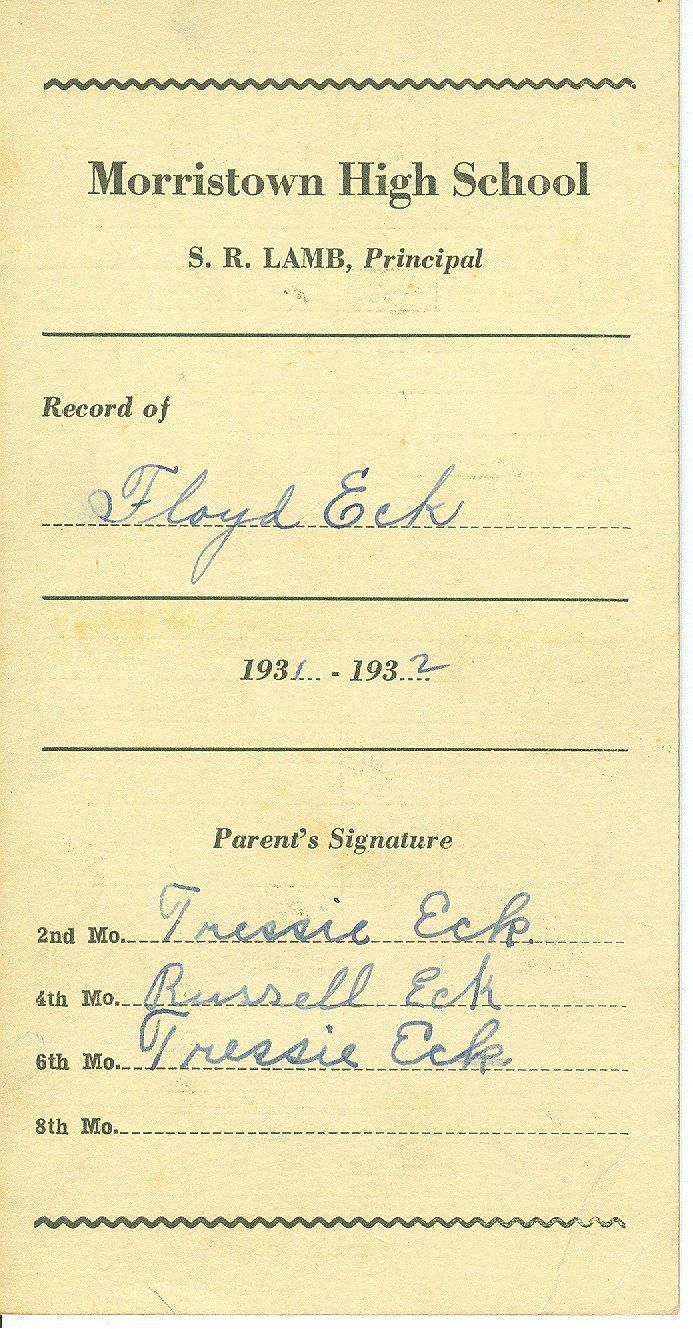 Morristown High School
S. R. LAMB, Principal
Record of
Floyd Eck
1931 - 1932
Parent's Signature
2nd Mo. Tressie Eck
4th Mo. Russell Eck
6th Mo. Tressie Eck
8th Mo.